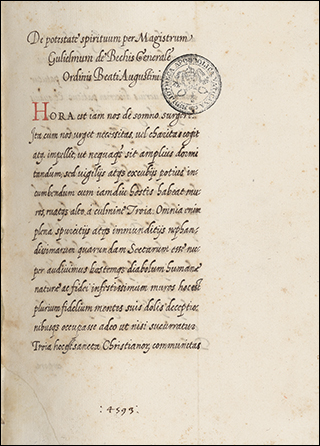 De potestate spirituum per Magistrum
Gulielmum de Bechis Generale
Ordinis Beati Augustini
HORA est iam nos de somno surgere
Ita cum nos urget necessitas, vel charitas cogit
atq impellit, ut nequaqȝ sit amplius dormi
tandum, sed vigilijs atqȝ excubijs potius in
cumbendum cum iamdiu hostis habeat mu
ros, ruatqȝ alto a culmine Troia: Omnia enim
plena spurcitijs atqȝ immunditijs nephan
dissimarum quarundam Sectarum esse nu
per audivimus hostemqȝ diabolum humanæ
naturæ at fidei infestissimum muros hoc est
plurium fidelium mentes suis dolis deceptio
nibusqȝ occupasse adeo ut nisi succurratur
Troia hoc est sancta Christianor, communitas
4593